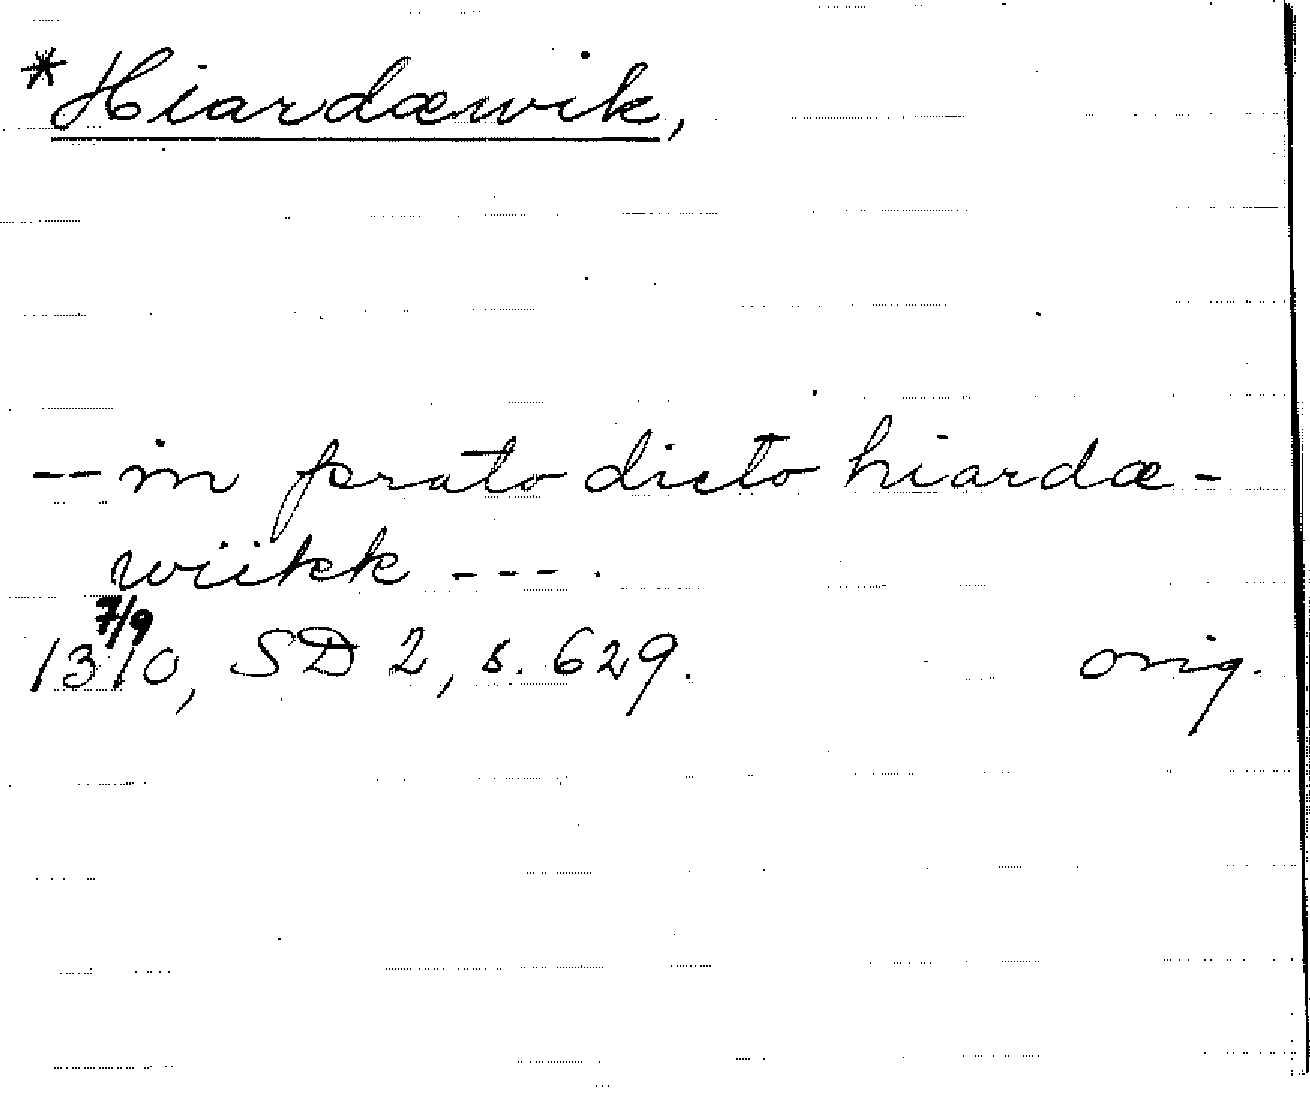 *Hiardæwik,
-- in prato dicto hiardæ-
wiikk ---.
7/9
1310, SD 2, s. 629. orig.